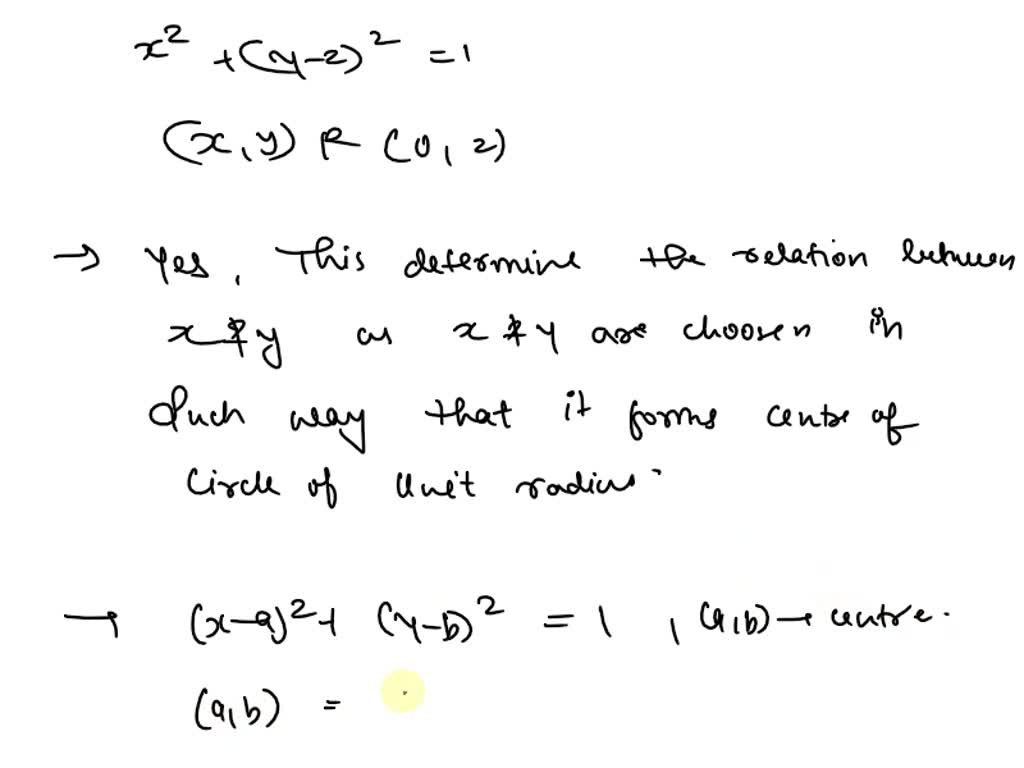 x² + (y-2)² = 1
(x, y) R (0, 2)
→ Yes, This determine the relation between
x & y as x & y are choosen in
Such way that it forms centre of
Circle of Unit radius.
→ (x-a)² + (y-b)² = 1 , (a,b) → centre.
(a,b) =